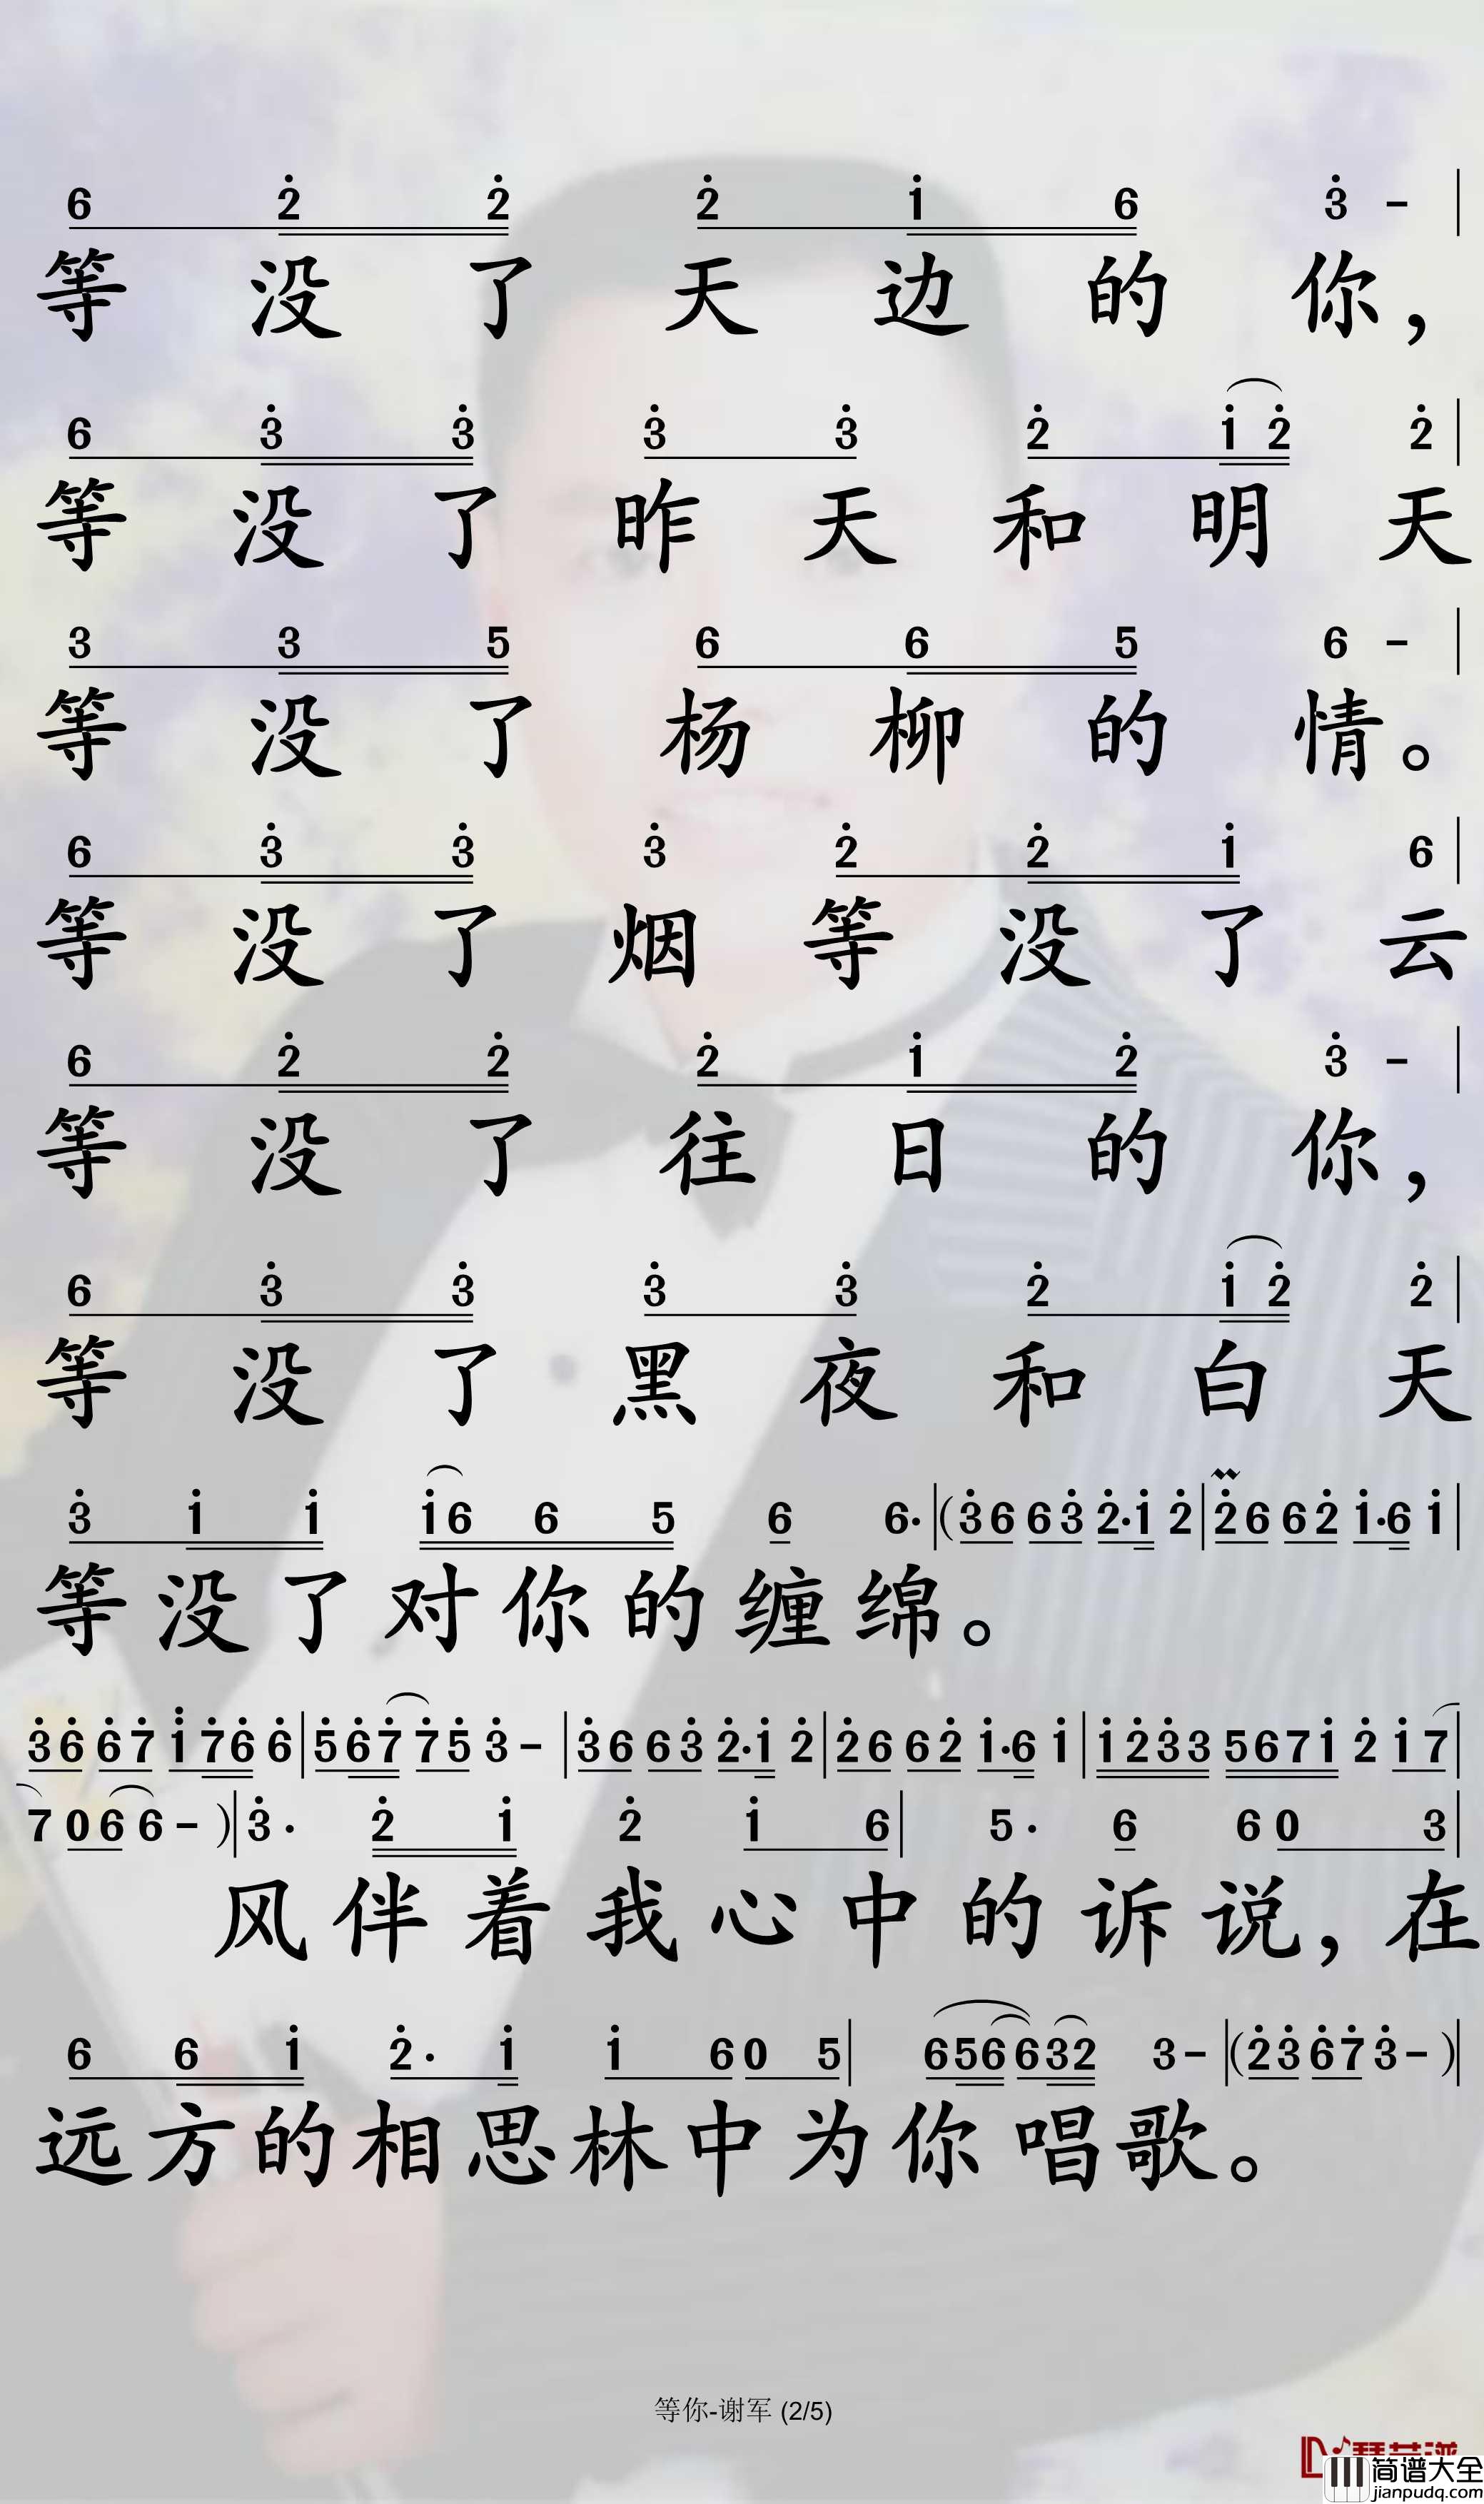 6 2 2 2 1 6 3 - |
等 没 了 天 边 的 你，
6 3 3 3 3 2 1 2 2 |
等 没 了 昨 天 和 明 天
3 3 5 6 6 5 6 - |
等 没 了 杨 柳 的 情。
6 3 3 3 2 2 1 6 |
等 没 了 烟 等 没 了 云
6 2 2 2 1 2 3 - |
等 没 了 往 日 的 你，
6 3 3 3 3 2 1 2 2 |
等 没 了 黑 夜 和 白 天
3 1 1 1 6 6 5 6 6· | (3 6 6 3 2· 1 2 | 2 6 6 2 1· 6 1 |
等 没 了 对 你 的 缠 绵。
3 6 6 7 1 7 6 6 | 5 6 7 7 5 3 - | 3 6 6 3 2· 1 2 | 2 6 6 2 1· 6 1 | 1 2 3 3 5 6 7 1 2 1 7 |
7 0 6 6 - ) | 3· 2 1 2 1 6 | 5· 6 6 0 3 |
风 伴 着 我 心 中 的 诉 说，在
6 6 1 2· 1 1 6 0 5 | 6 5 6 6 3 2 3 - | (2 3 6 7 3 - ) |
远 方 的 相 思 林 中 为 你 唱 歌。
等你-谢军 (2/5)
简谱大全
jianpudq.com